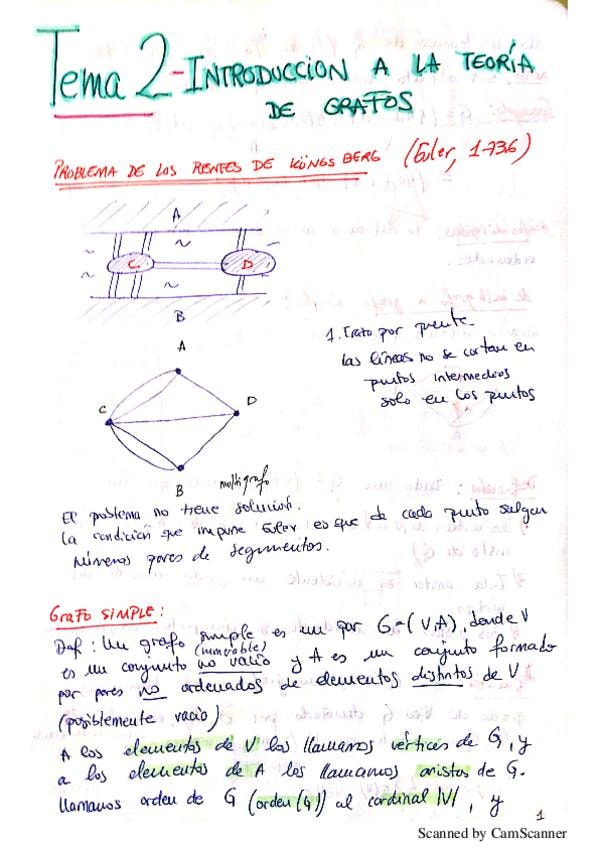 Tema 2-INTRODUCCION A LA TEORÍA
DE GRAFOS
PROBLEMA DE LOS PUENTES DE KÖNGSBERG (Euler, 1736)
A
~
~
C
D
~
~
B
1. trazo por puente
las líneas no se cortan en
puntos intermedios
solo en los puntos
A
C
D
B
multigrafo
El problema no tiene solución.
La condición que impone Euler es que de cada punto salgan
números pares de segmentos.
GRAFO SIMPLE:
Def: Un grafo simple es un par G=(V,A), donde V
es un conjunto no vacío y A es un conjunto formado
por pares no ordenados de elementos distintos de V
(posiblemente vacío)
A los elementos de V los llamamos vértices de G, y
a los elementos de A los llamamos aristas de G.
Llamamos orden de G (orden(G)) al cardinal |V|, y
1
Scanned by CamScanner